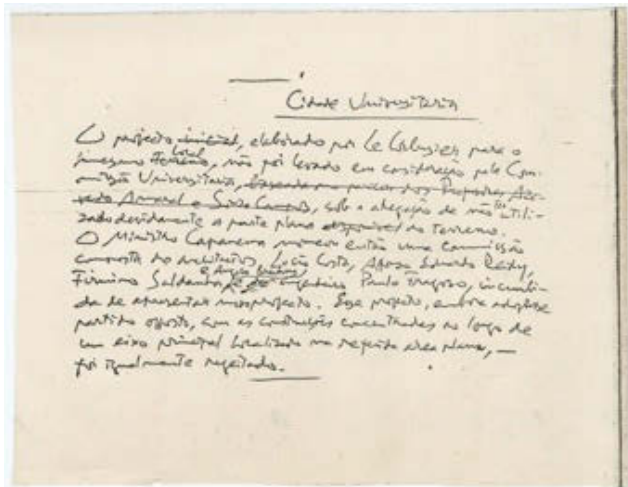 Cidade Universitaria
O projecto inicial, elaborado por Le Corbusier para o
mesmo terreno, local, não foi levado em consideração pela Com-
missão Universitaria, baseada no parecer dos Professores
Amaral e Souza Campos, sob a alegação de não ter utili-
zado devidamente a parte plana disponivel do terreno.
O Ministro Capanema nomeou então uma commissão
composta dos architectos, Lucio Costa, Affonso Eduardo Reidy,
Firmino Saldanha, e Angelo e do engenheiro Paulo Fragoso, incumbi-
da de apresentar novo projecto. Esse projecto, embora adoptasse
partido opposto, com as construcções concentradas ao longo de
um eixo principal localizado na referida area plana, —
foi igualmente rejeitado.